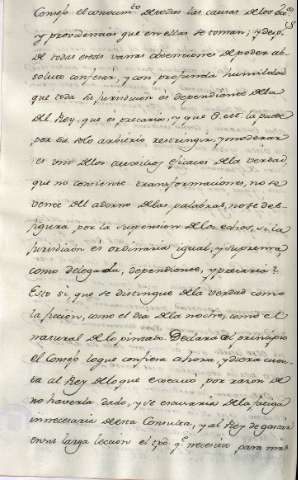 Consejo el conocim.to de todas las causas de los
y providencias que en ellas se toman; y desp.
de todas estas varias obtenciones de poder ab-
soluto confiesa, y con profunda humildad
que toda la jurisdiccion es dependiente de la
del Rey, que es precaria, y que V. M. la puede
por su solo arbitrio restringir, y moderar
es uno de los auxilios eficaces de la verdad
que no consiente transformaciones, no se
vence del adorno de las palabras, no se des-
figura por la supresion de los echos, si la
jurisdiccion es ordinaria igual, y suprema,
como delegada, dependiente, y precaria?
Esto si que se distingue de la verdad como
la ficcion, como el dia de la noche, como el
natural de lo pintado. Declara al principio
el Consejo lo que confiesa ahora, y diera cuen-
ta al Rey de lo que executó por razon de
no haverla dado, y se escusaria de la fatiga
innecesaria de esta Consulta, y al Rey de gastar
en su larga leccion el tpo. q.e necesita para mas